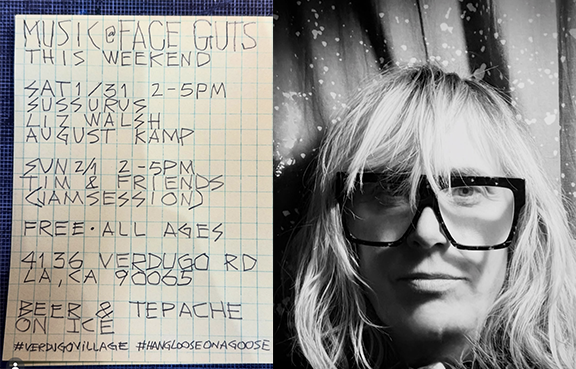 MUSIC@FACE GUTS
THIS WEEKEND
SAT 1/31 2-5PM
SUSSURUS
LIZ WALSH
AUGUST KAMP
SUN 2/1 2-5PM
TIM & FRIENDS
(JAMSESSION)
FREE·ALL AGES
4136 VERDUGO RD
LA, CA 90065
BEER & TEPACHE
ON ICE
#VERDUGOVILLAGE #HANGLOOSEONAGOOSE